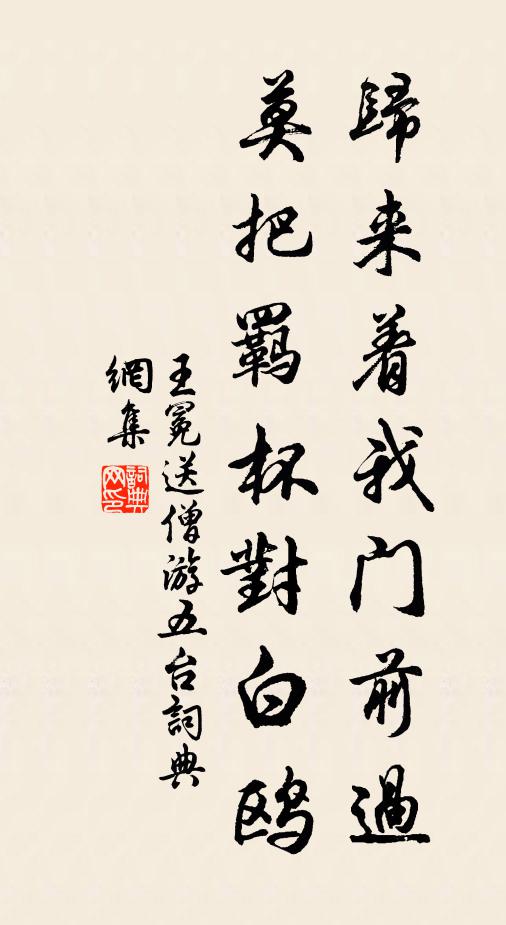 歸来着我門前過
莫把羈杯對白鸥
王冕送僧游五台詞典
網集
詞典
网印